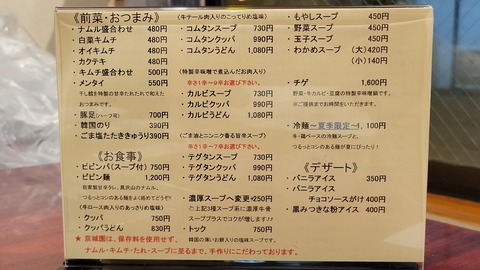 《前菜・おつまみ》
・ナムル盛合わせ 480円
・白菜キムチ 480円
・オイキムチ 480円
・カクテキ 480円
・キムチ盛合わせ 500円
・メンタイ 550円
干し鱈を特製の甘辛たれたれで和えた
おつまみです。
・豚足(ハーフ可) 700円
・韓国のり 390円
・ごま塩たたききゅうり390円
《お食事》
・ビビンバ(スープ付) 750円
・ビビン麺 1,200円
自家製甘辛ダレ、具沢山のナムル、
つるっとコシのある麺をよく絡めてどうぞ!
(牛ロース肉入りのあっさりめ塩味)
・クッパ 750円
・クッパうどん 830円
(牛テール肉入りのこってりめ塩味)
・コムタンスープ 730円
・コムタンクッパ 990円
・コムタンうどん 1,080円
(特製辛味噌で煮込んだお肉入り)
辛さ1辛～9辛お選び下さい。
・カルビスープ 730円
・カルビクッパ 990円
・カルビうどん 1,080円
(ごま油とニンニク香る旨辛スープ)
辛さ1辛～7辛お選び下さい。
・テグタンスープ 730円
・テグタンクッパ 990円
・テグタンうどん 1,080円
・濃厚スープへ変更+250円
◇上記3種スープ系に濃厚牛骨
スーププラスでコクが増します♪♪
・トック 750円
韓国の薄いお餅入りの塩味スープです。
・もやしスープ 450円
・野菜スープ 450円
・玉子スープ 450円
・わかめスープ (大)420円
(小)140円
・チゲ 1,600円
野菜・牛カルビ・豆腐の特製辛味噌鍋です。
※ご提供までお時間をいただきます。
・冷麺～夏季限定～1,100円
牛・鶏ベースの冷麺スープと、
つるっとコシのある麺が夏にぴったり!
《デザート》
・バニラアイス 350円
・バニラアイス
チョコソースがけ 400円
・黒みつきな粉アイス 400円
★ 京城園は、保存料を使用せず、
ナムル・キムチ・たれ・スープに至るまで、手作りにこだわっております。